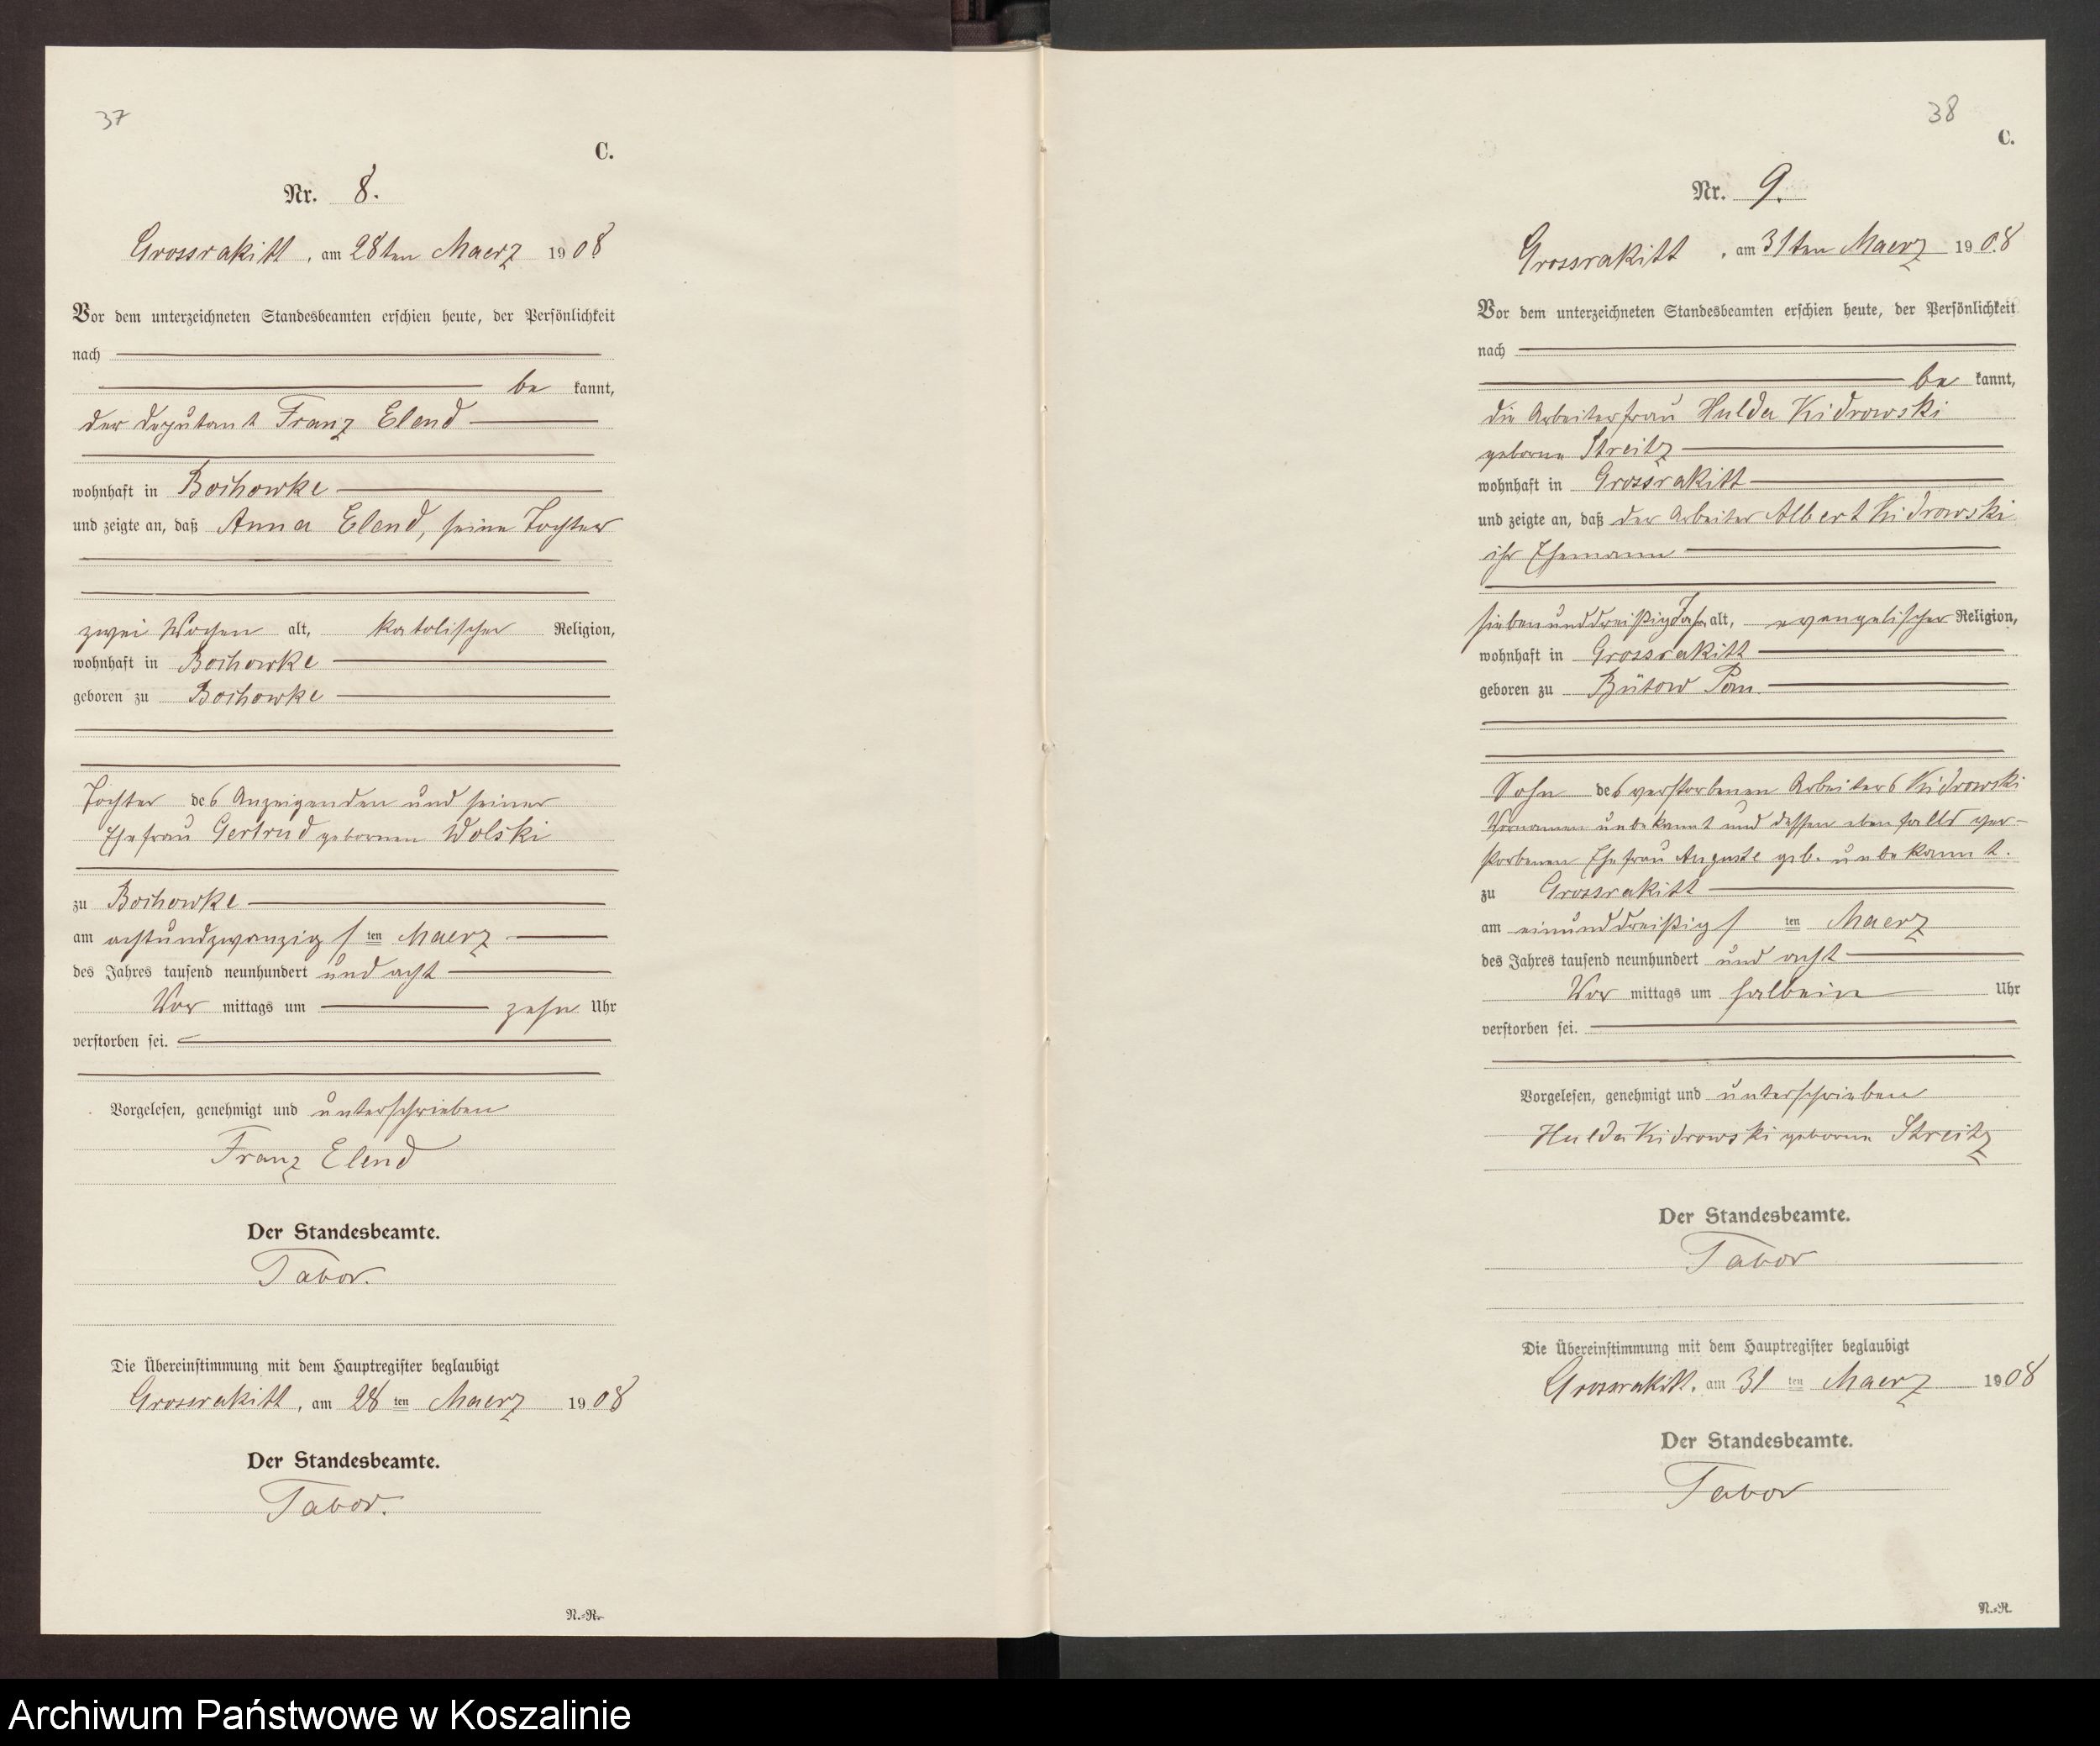 37
C.
Nr. 8.
Grossrakitt, am 28ten Maerz 1908
Vor dem unterzeichneten Standesbeamten erschien heute, der Persönlichkeit
nach
be kannt,
der Deputant Franz Elend
wohnhaft in Bochowke
und zeigte an, daß Anna Elend, seine Tochter
zwei Wochen alt, katolischer Religion,
wohnhaft in Bochowke
geboren zu Bochowke
Tochter des Anzeigenden und seiner
Ehefrau Gertrud gebornen Wolski
zu Bochowke
am achtundzwanzigsten Maerz
des Jahres tausend neunhundert und acht
Vor mittags um zehn Uhr
verstorben sei.
Vorgelesen, genehmigt und unterschrieben
Franz Elend
Der Standesbeamte.
Tabor.
Die Übereinstimmung mit dem Hauptregister beglaubigt
Grossrakitt, am 28ten Maerz 1908
Der Standesbeamte.
Tabor.
N.-R.
38
C.
Nr. 9.
Grossrakitt, am 31ten Maerz 1908
Vor dem unterzeichneten Standesbeamten erschien heute, der Persönlichkeit
nach
be kannt,
die Arbeiterfrau Hulda Kidrowski
geborne Streitz
wohnhaft in Grossrakitt
und zeigte an, daß der Arbeiter Albert Kidrowski
ihr Ehemann
siebenunddreißig Jahr alt, evangelischer Religion,
wohnhaft in Grossrakitt
geboren zu Bütow Pom
Sohn des verstorbenen Arbeiters Kidrowski
Vornamen unbekannt und dessen ebenfalls ver-
storbenen Ehefrau Auguste geb. unbekannt.
zu Grossrakitt
am einunddreißigsten Maerz
des Jahres tausend neunhundert und acht
Vor mittags um halbein Uhr
verstorben sei.
Vorgelesen, genehmigt und unterschrieben
Hulda Kidrowski geborne Streitz
Der Standesbeamte.
Tabor
Die Übereinstimmung mit dem Hauptregister beglaubigt
Grossrakitt, am 31ten Maerz 1908
Der Standesbeamte.
Tabor
N.-R.
Archiwum Państwowe w Koszalinie